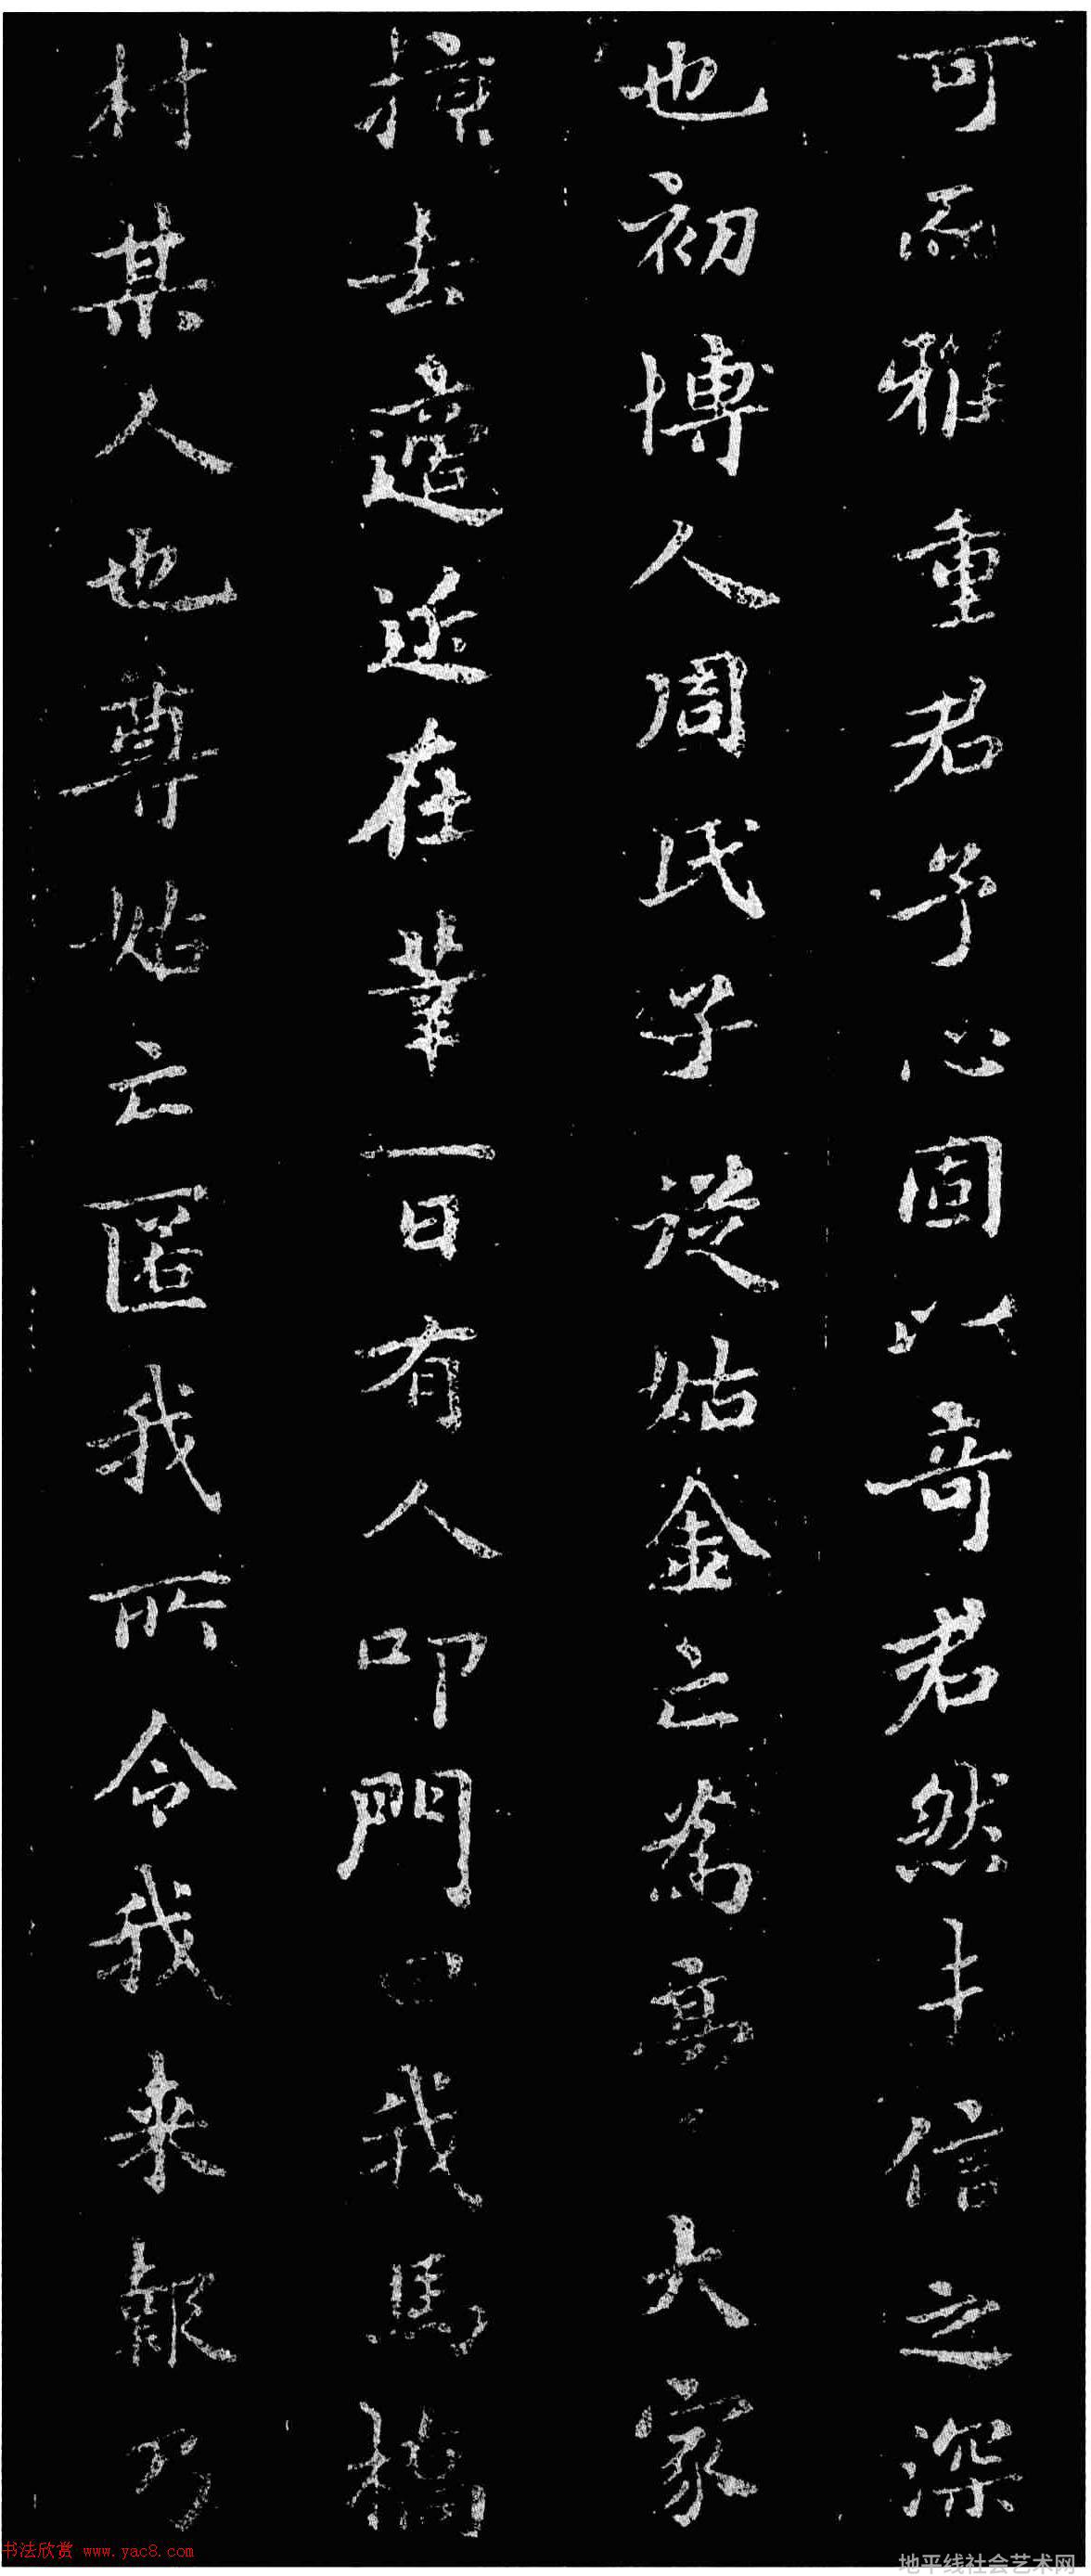 可而雅重君子心固以奇君然未信之深
也初博人周氏子從姑金之為高大家
掠去遠近在葦一日有人叩門曰我馬橋
村某人也尊姑亡匿我所令我来報乃
书法欣赏 www.yac8.com
地平线社会艺术网